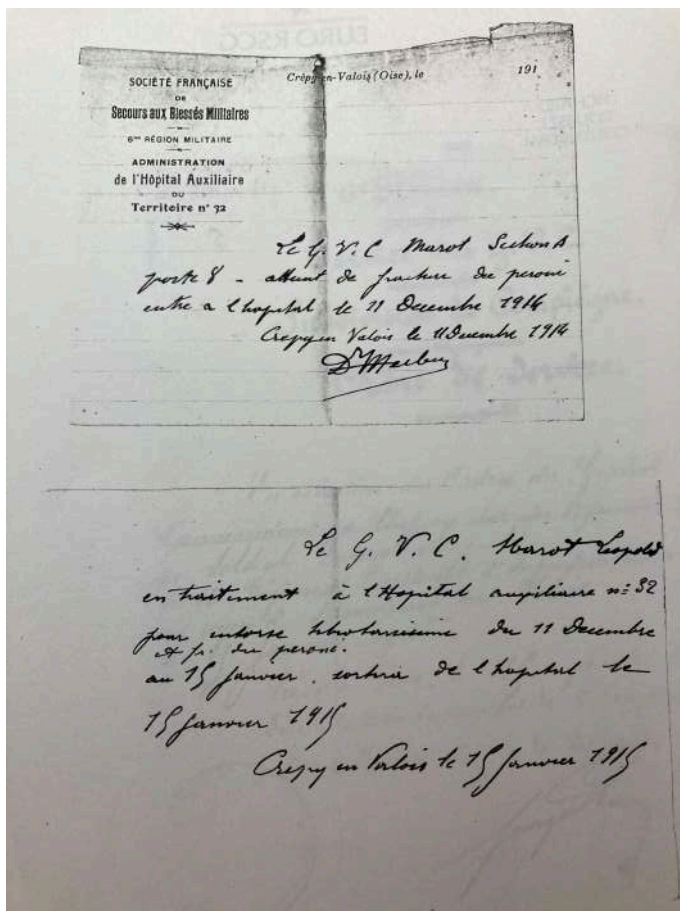 SOCIÉTÉ FRANÇAISE
DE
Secours aux Blessés Militaires
6me RÉGION MILITAIRE
ADMINISTRATION
de l'Hôpital Auxiliaire
DU
Territoire n° 32
Crépy-en-Valois (Oise), le 191
Le G. V. C Marot Section A
poste 8 - atteint de fracture du peroné
entre a l hopital le 11 Decembre 1914
Crepy en Valois le 11 Decembre 1914
Le G. V. C. Marot Leopold
en traitement à l Hopital auxiliaire n° 32
pour entorse du 11 Decembre
et fr. du peroné.
au 15 Janvier, sortira de l hopital le
15 Janvier 1915
Crepy en Valois le 15 Janvier 1915